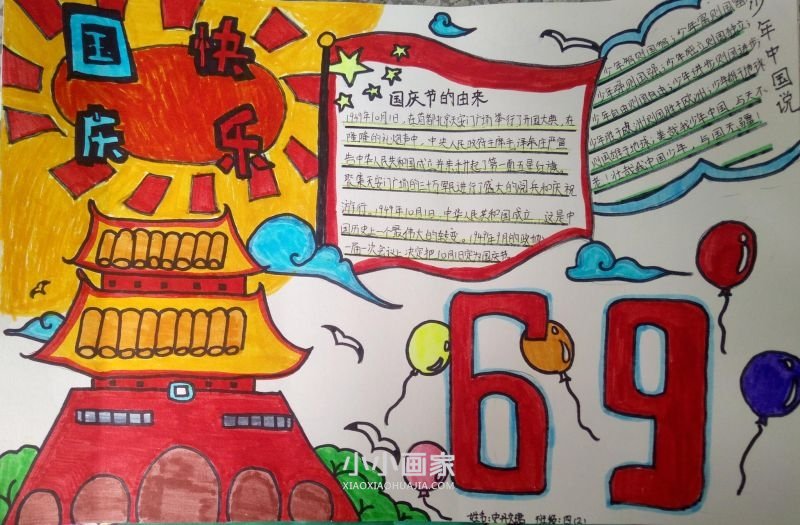 国庆
快乐
国庆节的由来
1949年10月1日,在首都北京天安门广场举行了开国大典,在
隆隆的礼炮声中,中央人民政府主席毛泽东庄严宣
告中华人民共和国成立并亲手升起了第一面五星红旗。
聚集天安门广场的三十万军民进行了盛大的阅兵和庆祝
游行。1949年10月1日,中华人民共和国成立,这是中
国历史上一个最伟大的转变。1949年9月的政协
一届一次会议上决定把10月1日定为国庆节
少年中国说
少年智则国智;少年富则国富
少年强则国强;少年独立则国独立;
少年自由则国自由;少年进步则国进步;
少年胜于欧洲则国胜于欧洲;少年雄于地球
则国雄于地球。美哉我少年中国,与天不
老!壮哉我中国少年,与国无疆!
69
小小画家
XIAOXIAOHUAJIA.COM
姓名: 班级:四(2)